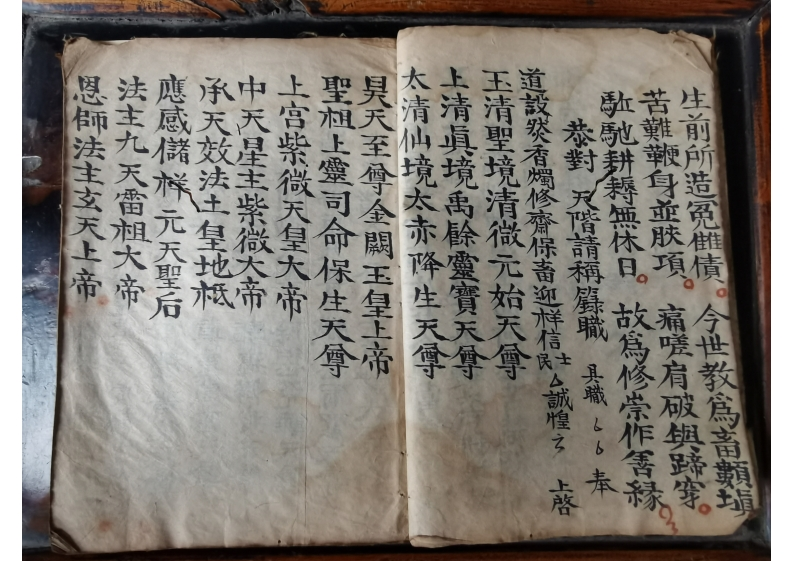 生前所造冤雠債。今世教爲畜類塡。
苦難鞭身並脥項。痛嗟肩破與蹄穿。
駈馳耕耨無休日。故爲修崇作善縁。
恭對　天階請稱籙職　具職ㄙㄙ奉
道設燚香燭修齋保畜迎祥信士民ㄙ誠惶云　上啓
玉清聖境清微元始天尊
上清眞境禹餘靈寶天尊
太清仙境太赤降生天尊
昊天至尊金闕玉皇上帝
聖祖上靈司命保生天尊
上宫紫微天皇大帝
中天星主紫微大帝
承天效法土皇地袛
應感儲祥元天聖后
法主九天雷祖大帝
恩師法主玄天上帝